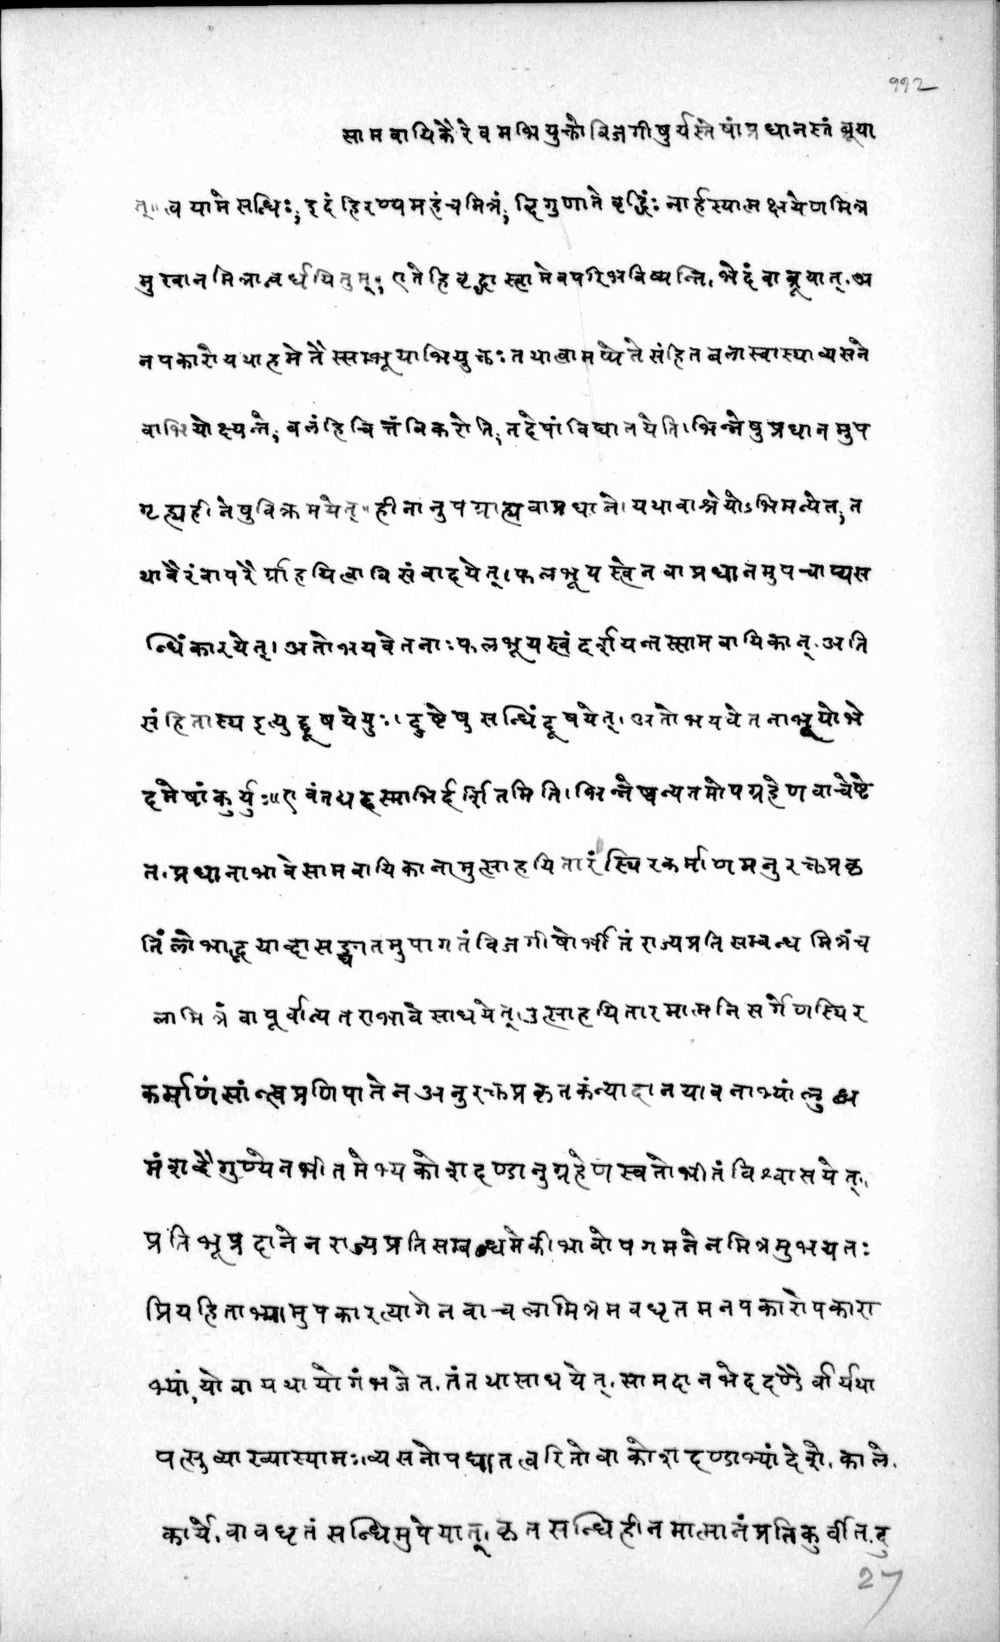 ११२
सामवायिकैरेवमभियुक्तो विजगीषुर्यस्तेषां प्रधानस्तं ब्रूया
त्॥ त्वयामे सन्धिः, इदं हिरण्यमहं च मित्रं, द्विगुणाते वृद्धिः नार्हस्यात्मक्षयेण मित्र
मुखानमित्रान्वर्धयितुम्, एतेहि वृद्धास्त्वामेव परिभविष्यन्ति, भेदं वा ब्रूयात्. अ
नपकारो यथाहमेतैस्सम्भूयाभियुक्तः तथात्वामप्येते संहितबलास्वास्थाव्यसने
वाभियोक्ष्यन्ते, बलं हि चित्तं विकरोति, तदेषां विघातयेति। भिन्नेषु प्रधानमुप
गृह्य हीनेषु विक्रमयेत्॥ हीनानुपग्राह्य वा प्रधाने। यथा वा श्रेयोऽभिमन्येत, त
था वैरं वा परैर्ग्राहयित्वा विसंवादयेत्। फलभूयस्त्वेन वा प्रधानमुपचाप्यस
न्धिं कारयेत्। अतोभयवेतनाः फलभूयस्त्वं दर्शयन्तस्सामवायिकान्. अति
संहितास्थ इत्युद्दूषयेयुः। दुष्टेषु सन्धिं दूषयेत्। अतोभयवेतना भूयो भे
दमेषां कुर्युः॥ एवं तद्यदस्माभिर्दर्शितमिति। भिन्नेष्वन्यतमोपग्रहेण वा चेष्टे
त. प्रधानाभावे सामवायिकानामुत्साहयितारं स्थिरकर्माणमनुरक्तप्रकृ
तिं लोभाद्भयाद्वा सङ्घातमुपागतं विजगीषोर्भीतं राज्यप्रतिसम्बन्धमित्रं च
लामित्रं वा पूर्वानुत्तराभावे साधयेत्। उत्साहयितारमात्मनिसर्गेण स्थिर
कर्माणं सांत्वप्रणिपातेन अनुरक्तप्रकृतकंन्यादानयावनाभ्यां लुब्ध
मंशद्वैगुण्येन भीतमेभ्य कोशदण्डानुग्रहेण स्वतोभीतं विश्वासयेत्॥
प्रतिभूप्रदानेन राज्यप्रतिसम्बन्धमेकीभावोपगमनेन मित्रमुभयतः
प्रियहिताभ्यामुपकारत्यागेन वा चलामित्रमवधृतमनपकारोपकारा
भ्यां, यो वा यथायोगं भजेत. तं तथा साधयेत्. सामदानभेददण्डैर्वा यथा
पत्सु व्याख्यास्यामः। व्यसनोपघातत्वरितो वा कोशदण्डाभ्यां देशे. काले.
कार्ये. वावधृतं सन्धिमुपेयात्। कृतसन्धिहीनमात्मानं प्रतिकुर्वीत. दु
27